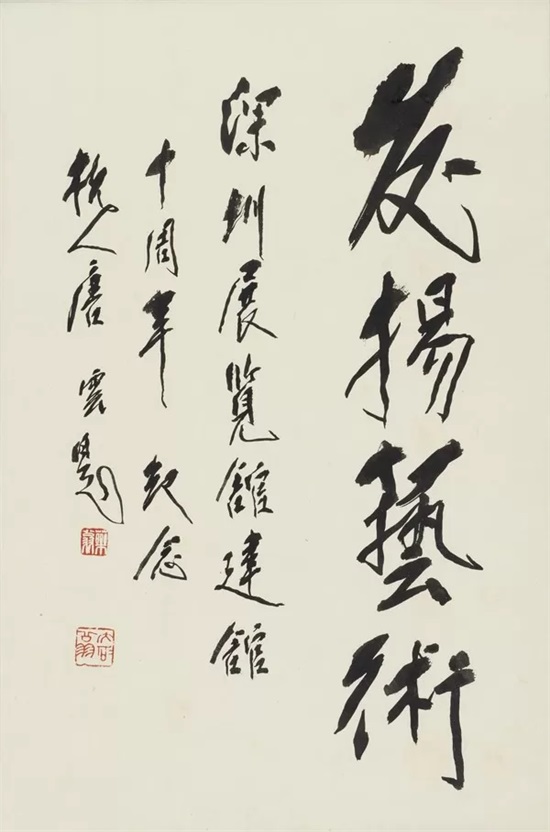 发揚藝術
深圳展覽館建館
十周年紀念
杭人唐雲題
藥翁